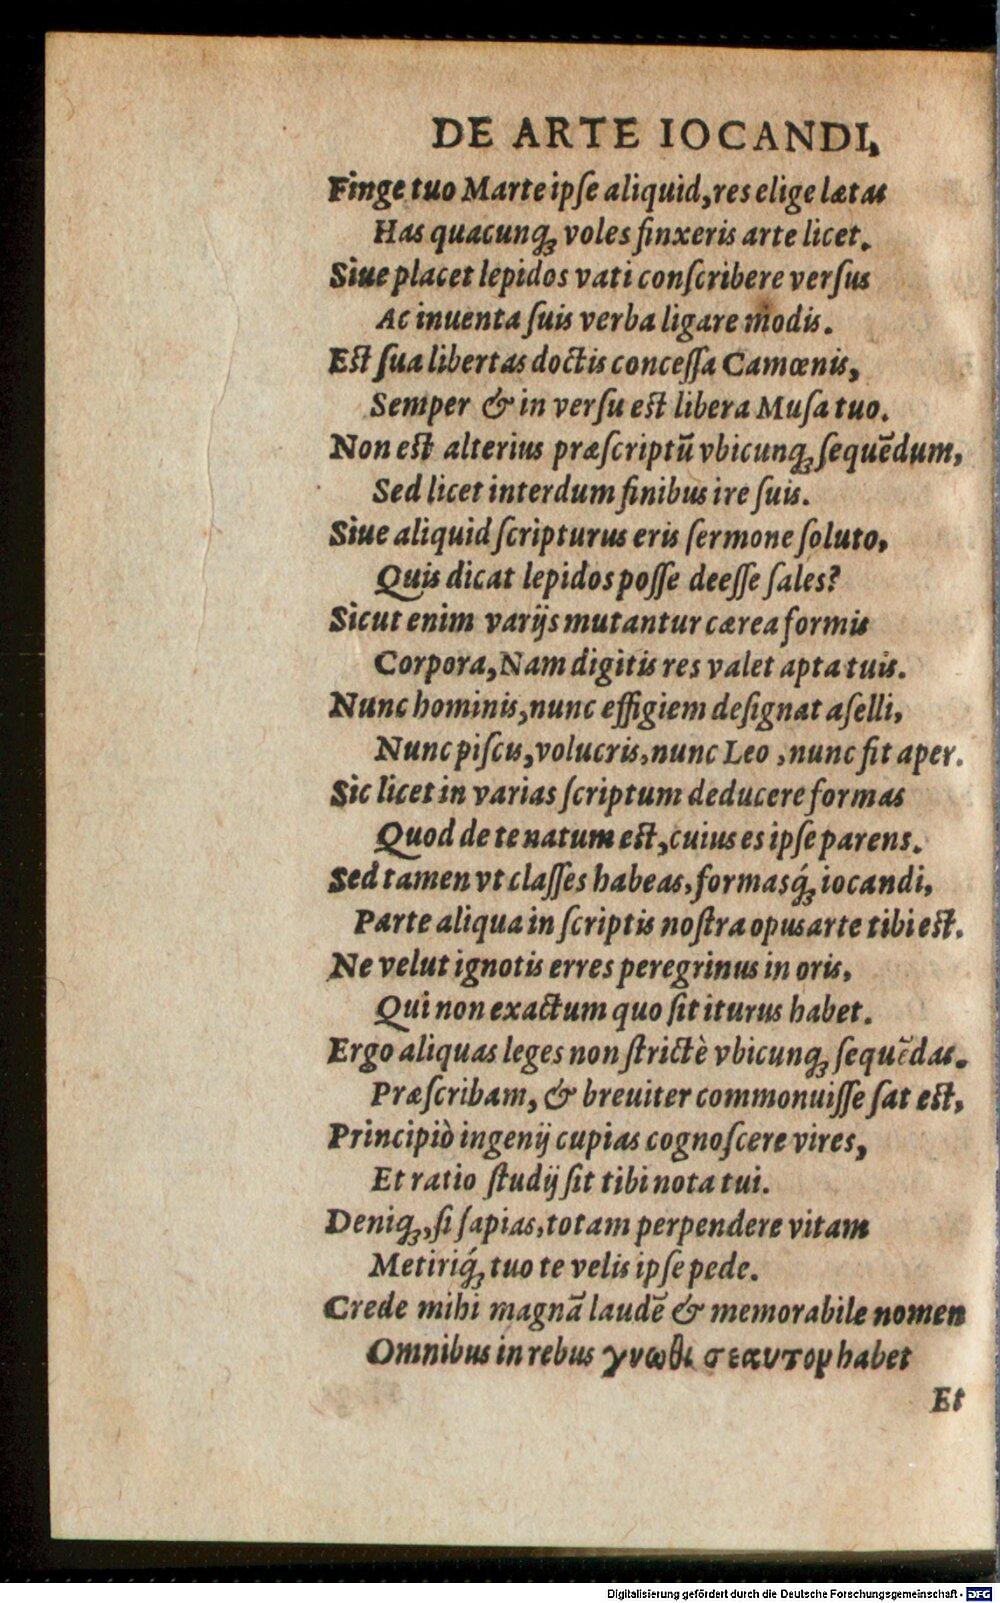 DE ARTE IOCANDI,
Finge tuo Marte ipſe aliquid, res elige lætas
Has quacunqꝫ voles finxeris arte licet.
Siue placet lepidos vati conſcribere verſus
Ac inuenta ſuis verba ligare modis.
Eſt ſua libertas doctis conceſſa Camœnis,
Semper & in verſu eſt libera Muſa tuo.
Non eſt alterius præſcriptũ vbicunqꝫ ſequẽdum,
Sed licet interdum finibus ire ſuis.
Siue aliquid ſcripturus eris ſermone ſoluto,
Quis dicat lepidos poſſe deeſſe ſales?
Sicut enim varijs mutantur cærea formis
Corpora, Nam digitis res valet apta tuis.
Nunc hominis, nunc effigiem deſignat aſelli,
Nunc piſcis, volucris, nunc Leo, nunc fit aper.
Sic licet in varias ſcriptum deducere formas
Quod de te natum eſt, cuius es ipſe parens.
Sed tamen vt claſſes habeas, formasq́ꝫ iocandi,
Parte aliqua in ſcriptis noſtra opus arte tibi eſt.
Ne velut ignotis erres peregrinus in oris,
Qui non exactum quo ſit iturus habet.
Ergo aliquas leges non ſtrictè vbicunqꝫ ſequẽdas.
Præſcribam, & breuiter commonuiſſe ſat eſt,
Principiò ingenij cupias cognoſcere vires,
Et ratio ſtudij ſit tibi nota tui.
Deniqꝫ, ſi ſapias, totam perpendere vitam
Metiriq́ꝫ tuo te velis ipſe pede.
Crede mihi magnã laudẽ & memorabile nomen
Omnibus in rebus γνωθι σεαυτον habet
Et
Digitalisierung gefördert durch die Deutsche Forschungsgemeinschaft - DFG